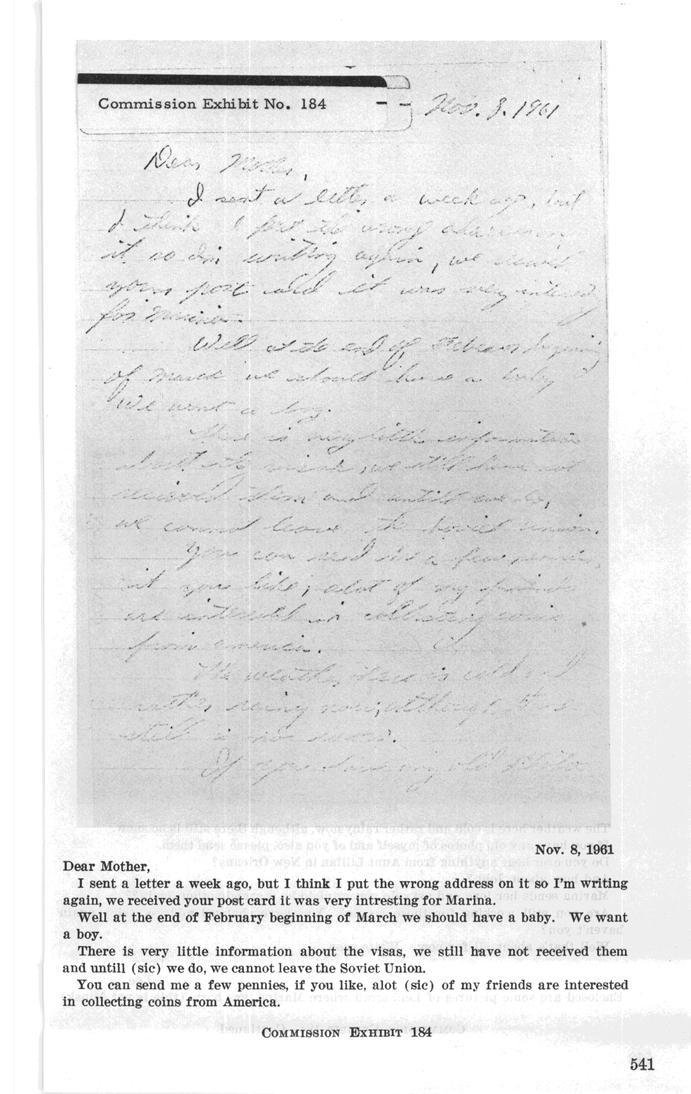 Commission Exhibit No. 184
Nov. 8. 1961
Dear Mother,
I sent a letter a week ago, but
I think I put the wrong address on
it so I'm writing again, we
your post card it was very
for Marina.
Well at the end of February
of March we should have a baby
We want a boy.
There is very little information
about the visas, we still have not
them and untill we do,
we cannot leave the Soviet Union.
You can send me a few pennies,
if you like, alot of my friends
are in collecting coins
from America.
The weather here is cold and
rather rainy now, although there
still is no snow.
If you have any old
Nov. 8, 1961
Dear Mother,
I sent a letter a week ago, but I think I put the wrong address on it so I'm writing
again, we received your post card it was very intresting for Marina.
Well at the end of February beginning of March we should have a baby. We want
a boy.
There is very little information about the visas, we still have not received them
and untill (sic) we do, we cannot leave the Soviet Union.
You can send me a few pennies, if you like, alot (sic) of my friends are interested
in collecting coins from America.
COMMISSION EXHIBIT 184
541